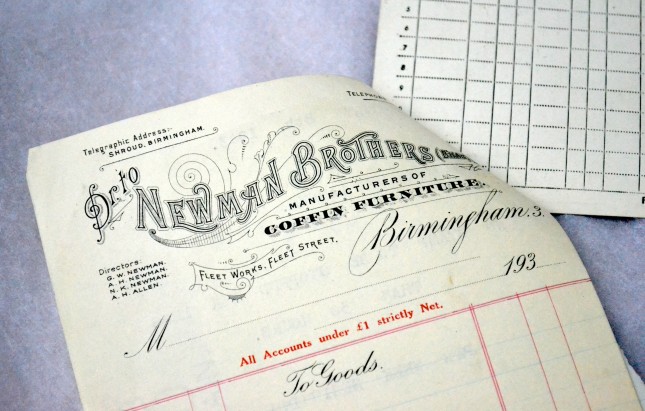 5
6
7
8
9
Telegraphic Address:-
SHROUD, BIRMINGHAM.
Dr to
NEWMAN BROTHERS
MANUFACTURERS OF
COFFIN FURNITURE.
Directors:
G. W. NEWMAN.
A. H. NEWMAN.
N. K. NEWMAN.
A. H. ALLEN.
FLEET WORKS, FLEET STREET.
Birmingham. 3.
193
M
All Accounts under £1 strictly Net.
To Goods.